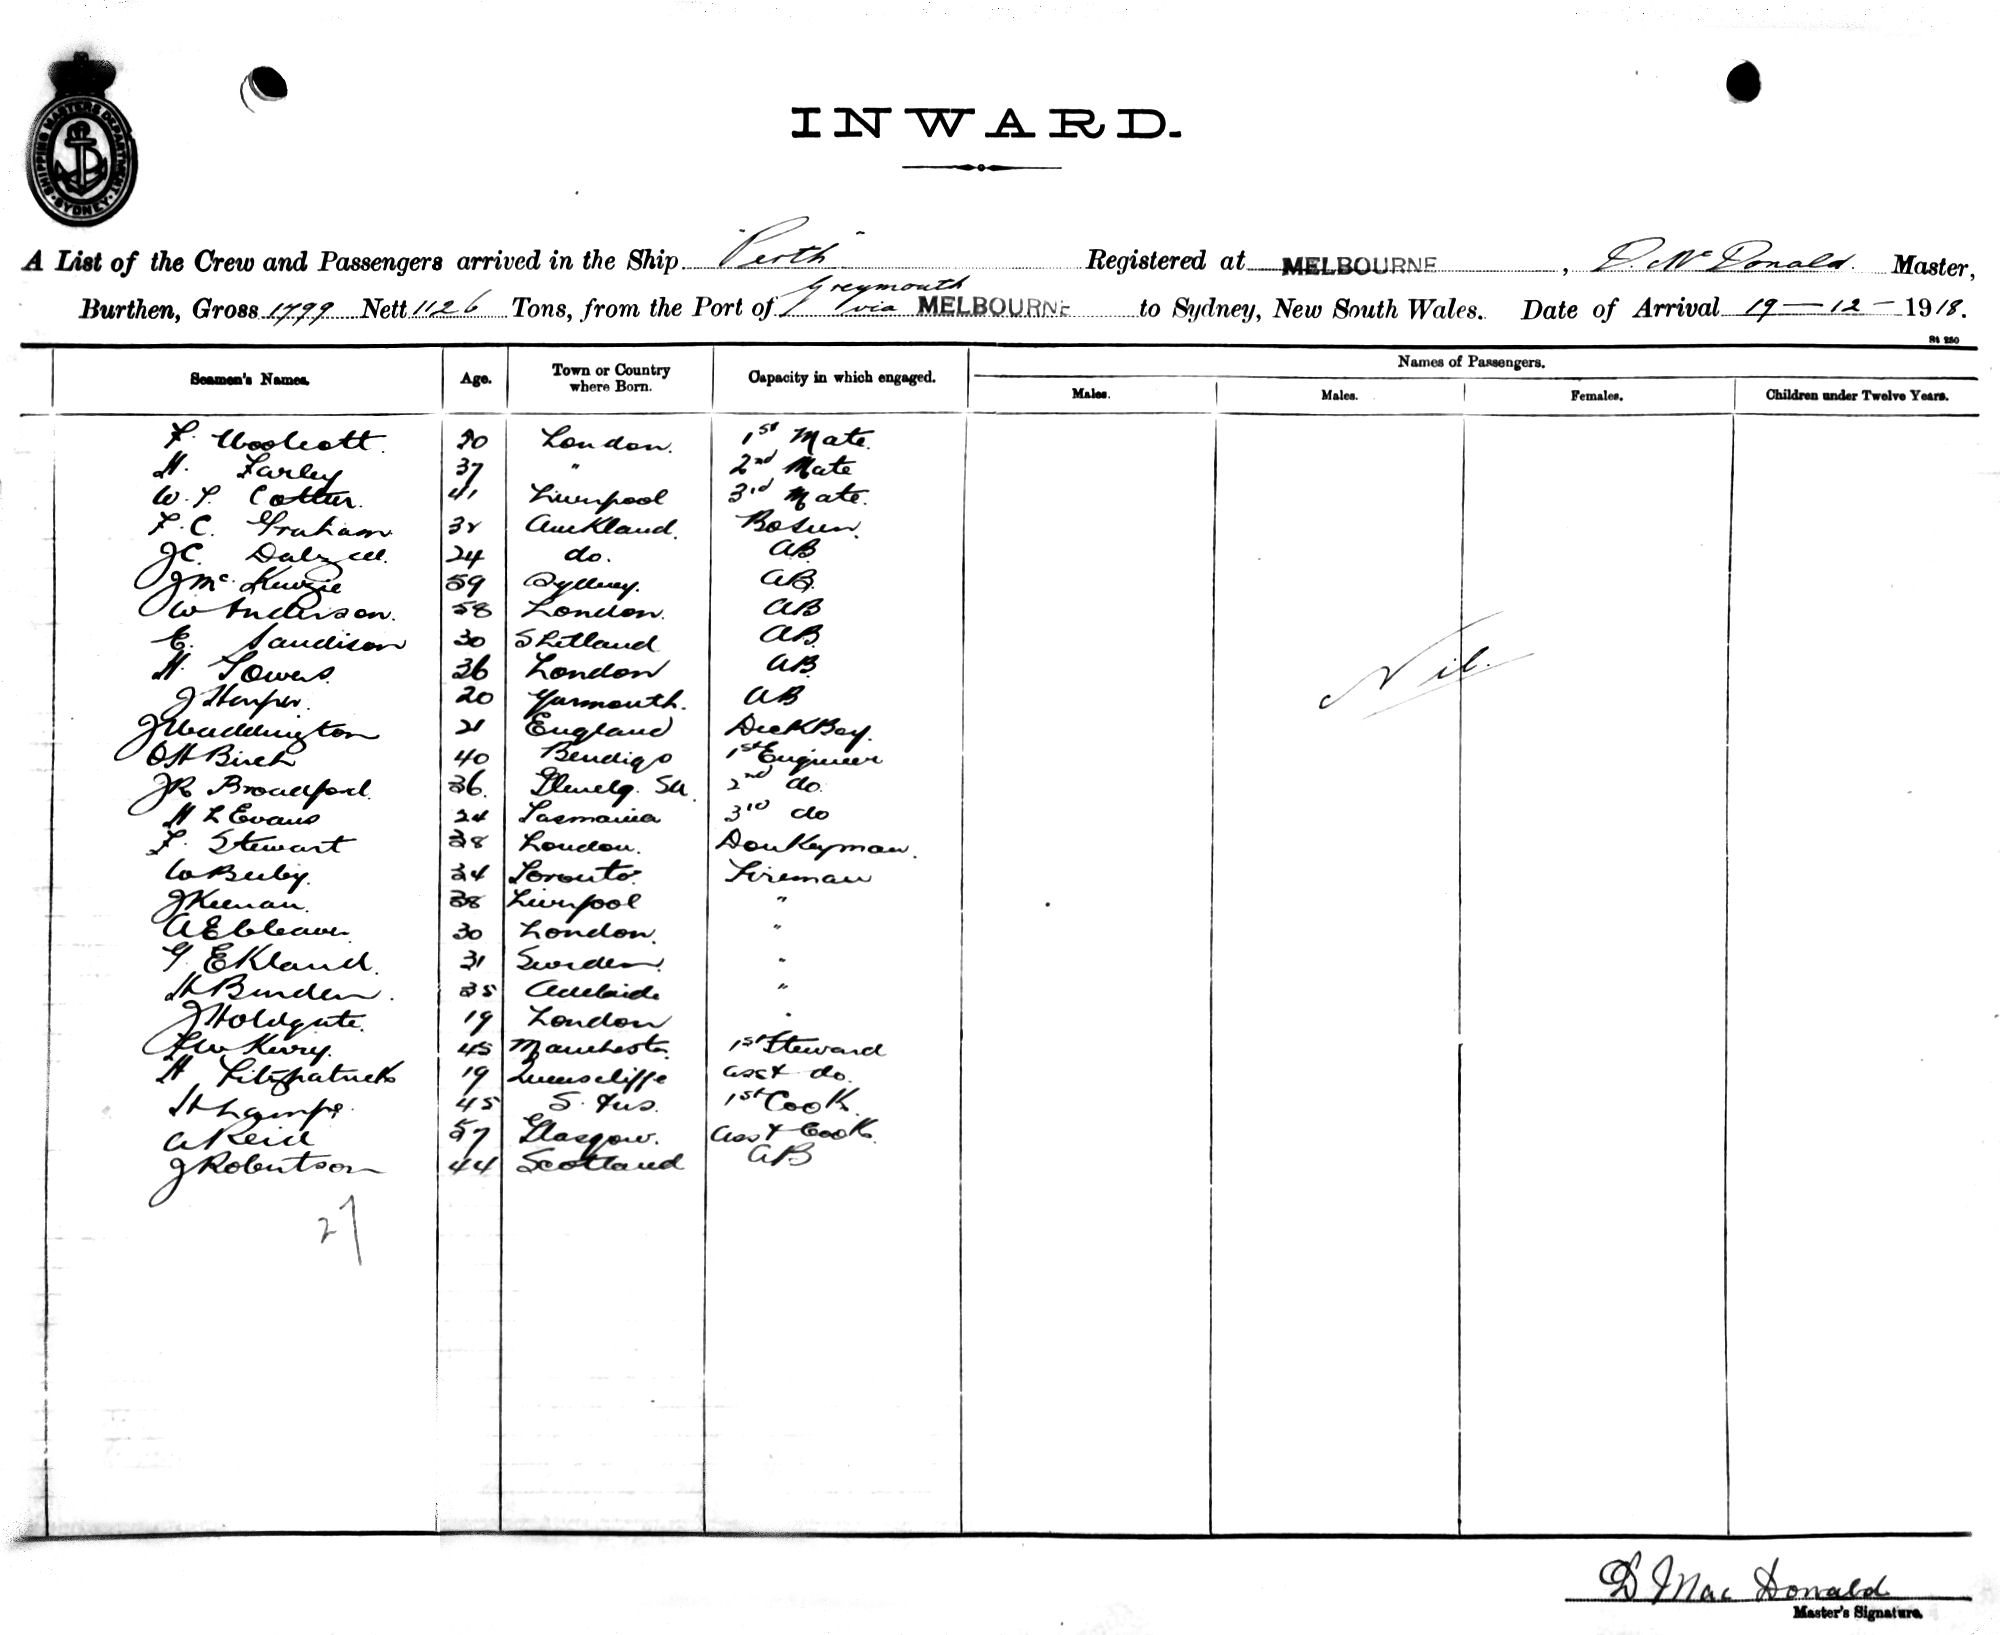 SHIPPING MASTERS DEPARTMENT SYDNEY
INWARD.
A List of the Crew and Passengers arrived in the Ship "Perth" Registered at MELBOURNE, D. McDonald. Master,
Burthen, Gross 1799 Nett 1126 Tons, from the Port of Greymouth via MELBOURNE to Sydney, New South Wales. Date of Arrival 19-12-1918.
St 250
Seamen's Names. Age. Town or Country where Born. Capacity in which engaged. Names of Passengers.
Males. Males. Females. Children under Twelve Years.
F. Woolcott. London. 1st Mate.
H. Farley 37 " 2nd Mate
W. Cotter. 41 Liverpool 3rd Mate.
F. C. Graham 32 Auckland. Bosun.
JC. Dalzell. 24 do. AB
J McKenzie 59 Sydney. AB.
W Anderson. 58 London. AB
E. Sandison 30 Shetland AB
H. Towers. 36 London AB.
J Harper. 20 Yarmouth. AB
J Waddington 21 England Deck Boy.
OH Birch 40 Bendigo 1st Engineer
JR Broadford. 36. Glenelg. SA. 2nd do.
H L Evans 24 Tasmania 3rd do
F. Stewart 38 London. Donkeyman.
W 34 Toronto. Fireman
J Keenan. 38 Liverpool "
AE Cleaver. 30 London. "
G. Ekland. 31 Sweden. "
H Burden. 35 Adelaide "
J Holdgate. 19 London "
FW Kerry. 45 Manchester. 1st Steward
H Fitzpatrick 19 Queenscliffe Asst do.
H Lampe. 45 S. 1st Cook.
A Reid 57 Glasgow. Asst Cook.
J Robertson 44 Scotland AB
27
Nil.
D MacDonald
Master's Signature.